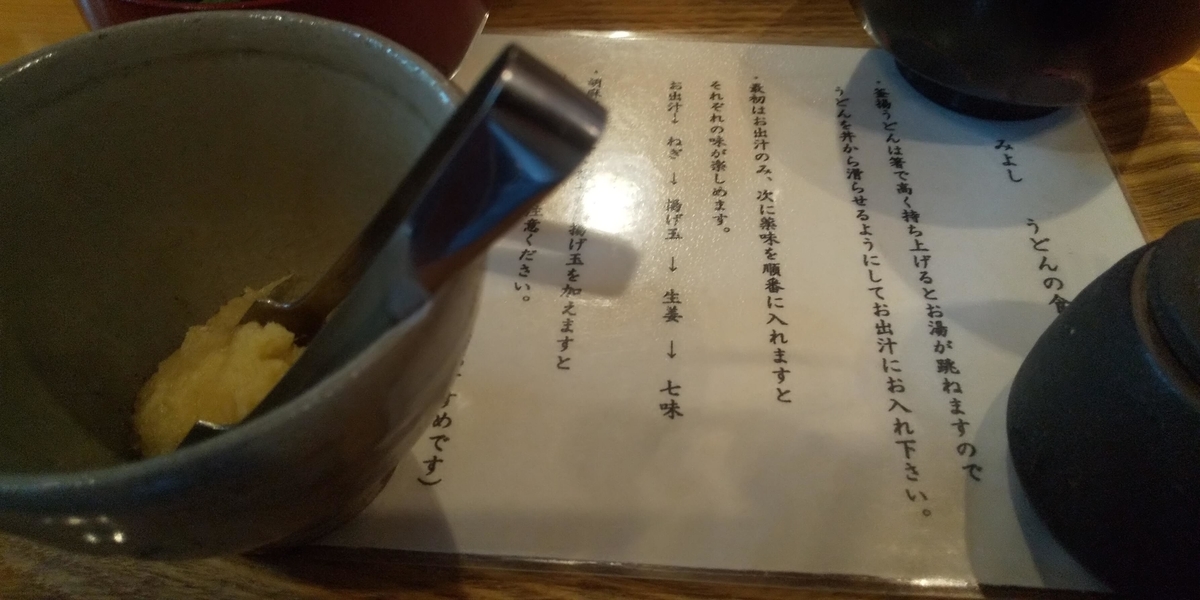 みよし　うどんの食
・釜揚うどんは箸で高く持ち上げるとお湯が跳ねますので
うどんを丼から滑らせるようにしてお出汁にお入れ下さい。
・最初はお出汁のみ、次に薬味を順番に入れますと
それぞれの味が楽しめます。
お出汁→ねぎ→揚げ玉→生姜→七味
・胡麻 揚げ玉を加えますと
注意ください。
すめです)